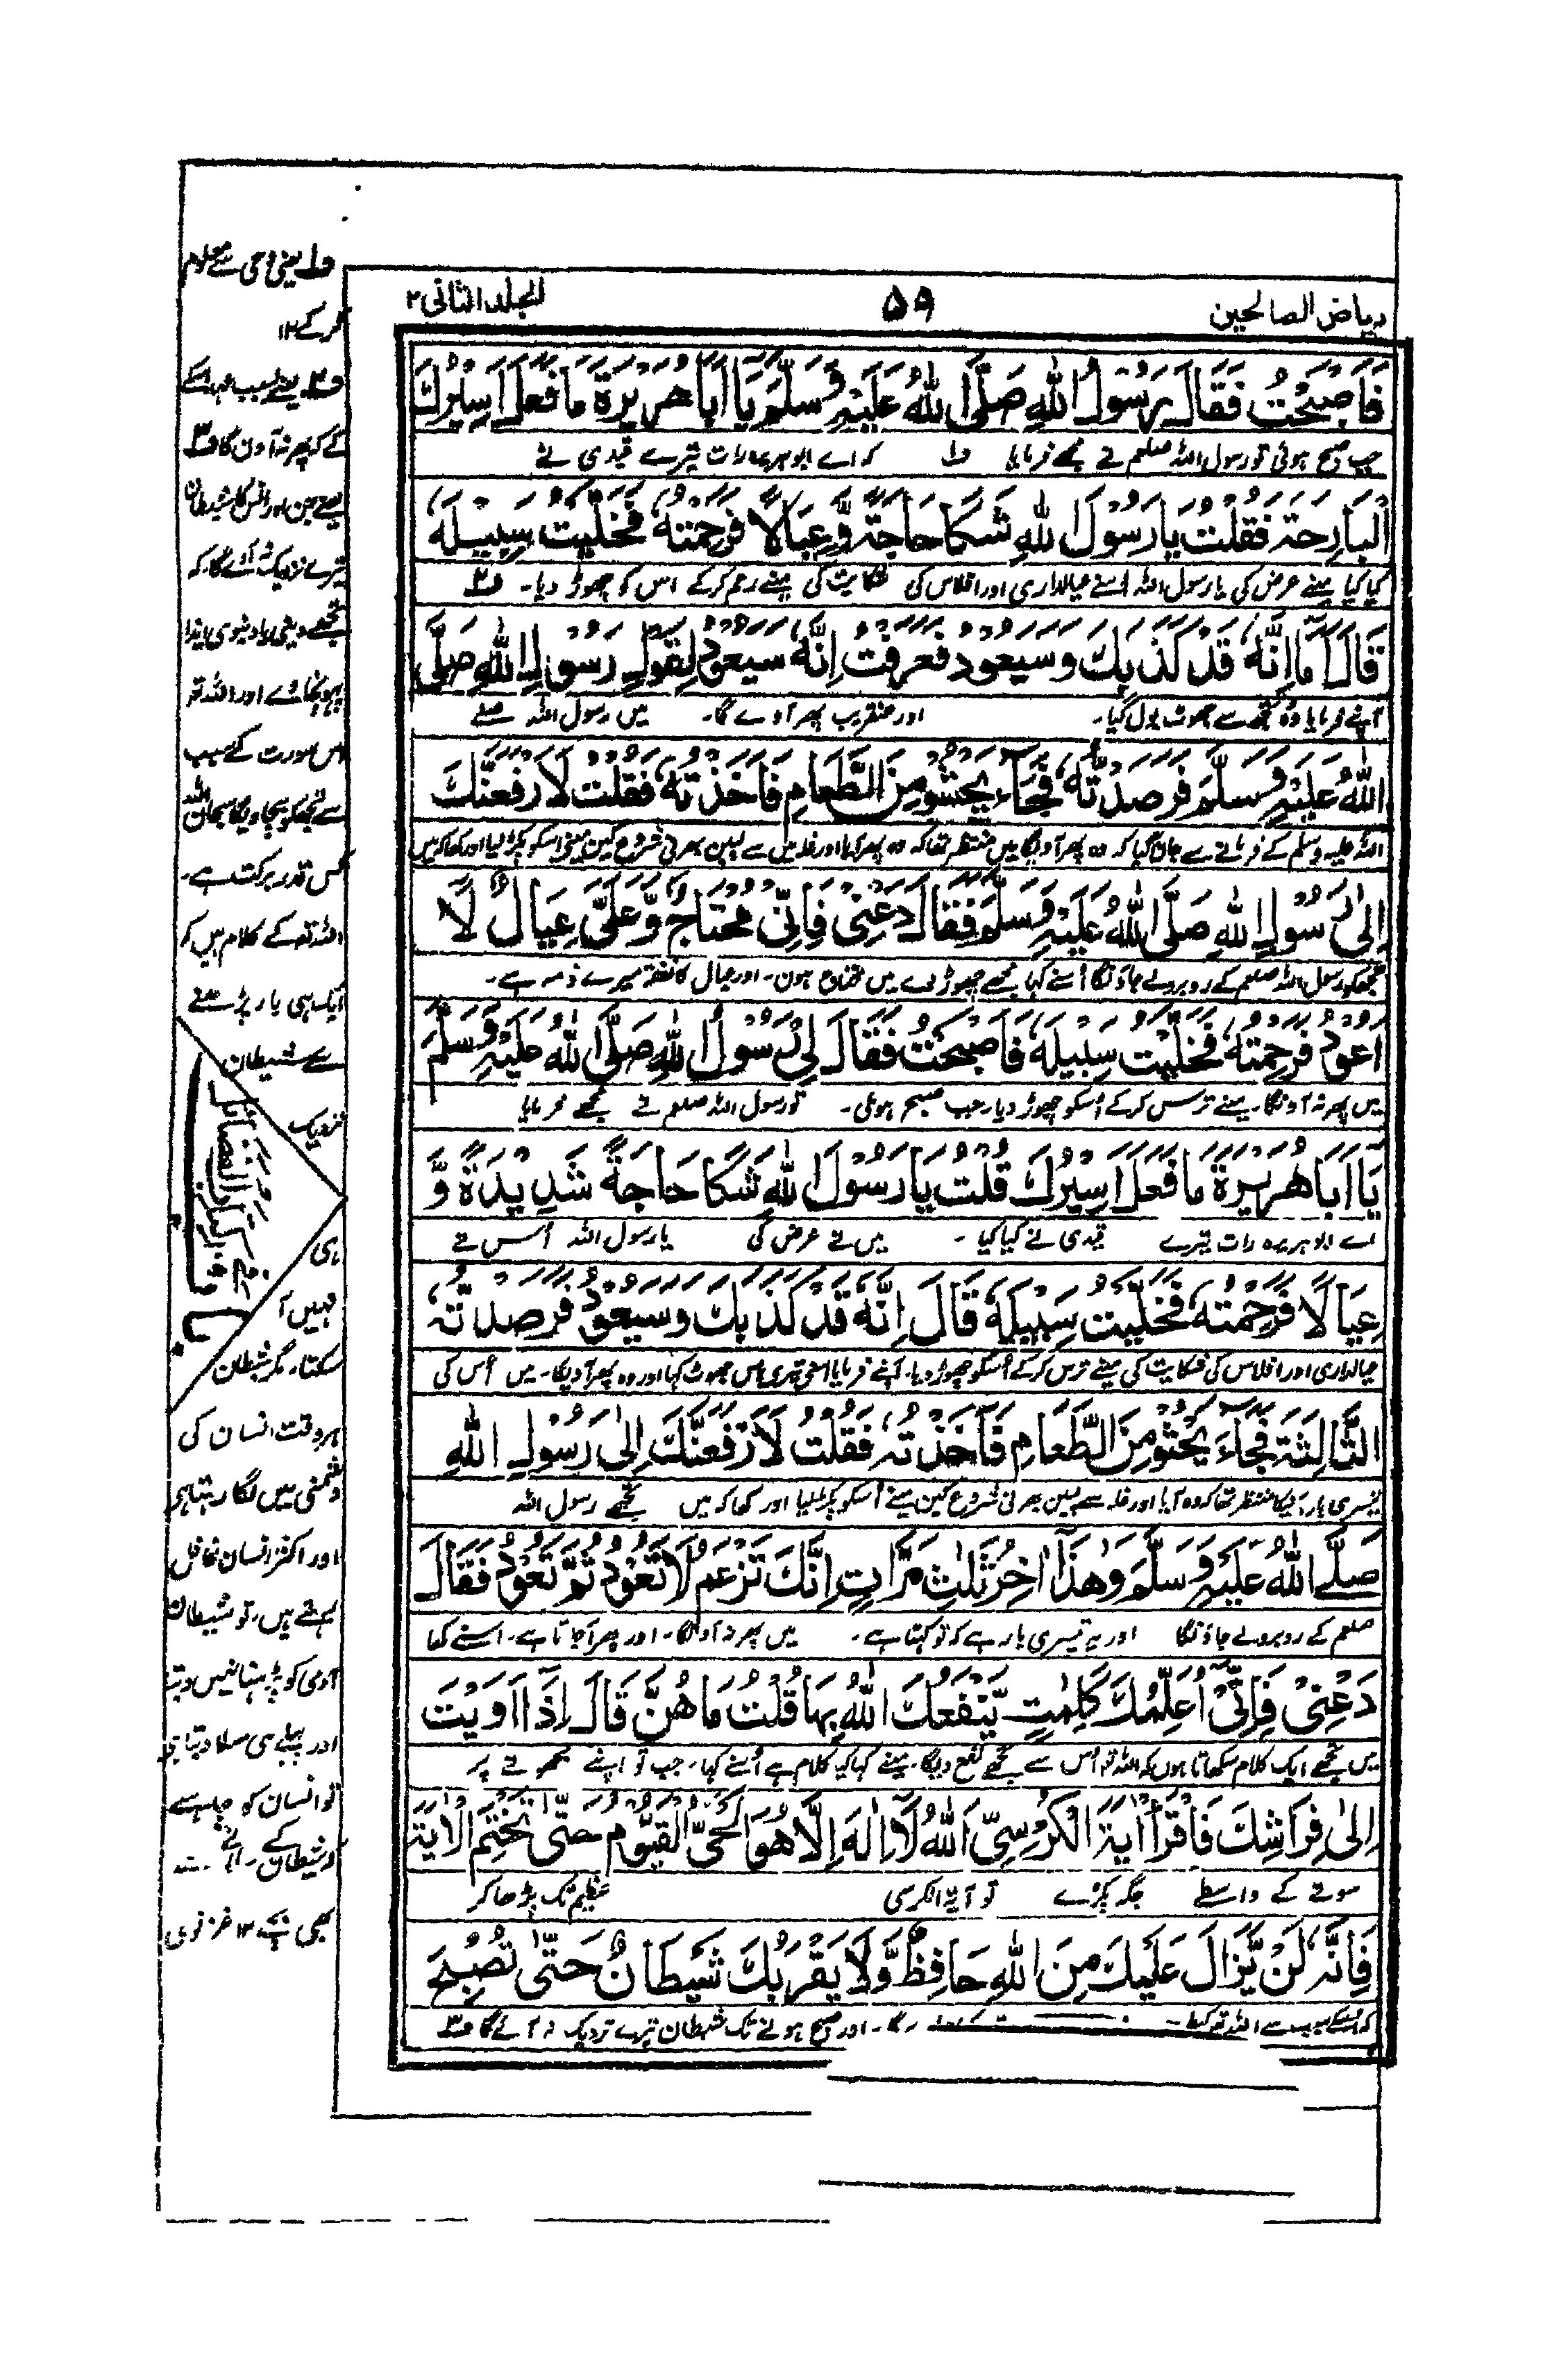 ریاض الصالحین
۵۹
المجلد الثانی ۲
فَاَصْبَحْتُ فَقَالَ رَسُوْلُ اللّٰهِ صَلَّی اللّٰهُ عَلَیْهِ وَسَلَّمَ یَا اَبَا هُرَیْرَةَ مَا فَعَلَ اَسِیْرُكَ
جب صبح ہوئی تو رسول اللہ صلعم نے مجھے فرمایا ف۱ کہ اے ابوہریرہ رات تیرے قیدی نے
الْبَارِحَةَ فَقُلْتُ یَا رَسُوْلَ اللّٰهِ شَكَا حَاجَةً وَّعِیَالًا فَرَحِمْتُهٗ فَخَلَّیْتُ سَبِیْلَهٗ
کیا کیا مینے عرض کی یا رسول اللہ اسنے عیالداری اور افلاس کی شکایت کی مینے رحم کرکے اس کو چھوڑ دیا۔ ف۲
قَالَ اَمَا اِنَّهٗ قَدْ كَذَبَكَ وَسَیَعُوْدُ فَعَرَفْتُ اِنَّهٗ سَیَعُوْدُ لِقَوْلِ رَسُوْلِ اللّٰهِ صَلَّی
آپنے فرمایا وہ تجھ سے جھوٹ بول گیا۔ اور عنقریب پھر آوے گا۔ میں رسول اللہ صلے
اللّٰهُ عَلَیْهِ وَسَلَّمَ فَرَصَدْتُّهٗ فَجَآءَ یَحْثُوْ مِنَ الطَّعَامِ فَاَخَذْتُهٗ فَقُلْتُ لَاَرْفَعَنَّكَ
اللہ علیہ وسلم کے فرمانے سے جان گیا کہ وہ پھر آویگا میں منتظر تھا کہ وہ پھر آیا اور غلہ میں سے لپین بھرنی شروع کین مینے اسکو پکڑ لیا اور کہا کہ میں
اِلٰی رَسُوْلِ اللّٰهِ صَلَّی اللّٰهُ عَلَیْهِ وَسَلَّمَ فَقَالَ دَعْنِیْ فَاِنِّیْ مُحْتَاجٌ وَّعَلَیَّ عِیَالٌ لَّا
تجھکو رسول اللہ صلعم کے روبرو لے جاؤنگا اُسنے کہا مجھے چھوڑ دے میں محتاج ہون۔ اور عیال کا نفقہ میرے ذمہ ہے۔
اَعُوْدُ فَرَحِمْتُهٗ فَخَلَّیْتُ سَبِیْلَهٗ فَاَصْبَحْتُ فَقَالَ لِیْ رَسُوْلُ اللّٰهِ صَلَّی اللّٰهُ عَلَیْهِ وَسَلَّمَ
میں پھر نہ آونگا۔ مینے ترس کرکے اُسکو چھوڑ دیا۔ جب صبح ہوئی۔ تو رسول اللہ صلعم نے مجھے فرمایا
یَا اَبَا هُرَیْرَةَ مَا فَعَلَ اَسِیْرُكَ قُلْتُ یَا رَسُوْلَ اللّٰهِ شَكَا حَاجَةً شَدِیْدَةً وَّ
اے ابوہریرہ رات تیرے قیدی نے کیا کیا۔ میں نے عرض کی یا رسول اللہ اُس نے
عِیَالًا فَرَحِمْتُهٗ فَخَلَّیْتُ سَبِیْلَهٗ قَالَ اِنَّهٗ قَدْ كَذَبَكَ وَسَیَعُوْدُ فَرَصَدْتُّهٗ
عیالداری اور افلاس کی شکایت کی مینے ترس کرکے اُسکو چھوڑ دیا۔ آپنے فرمایا اسنے تیرے پاس جھوٹ کہا اور وہ پھر آویگا۔ میں اُس کی
الثَّالِثَةَ فَجَآءَ یَحْثُوْ مِنَ الطَّعَامِ فَاَخَذْتُهٗ فَقُلْتُ لَاَرْفَعَنَّكَ اِلٰی رَسُوْلِ اللّٰهِ
تیسری بار منتظر تھا کہ وہ آیا اور غلہ سے لپین بھرنی شروع کین مینے اُسکو پکڑ لیا اور کہا کہ میں تجھے رسول اللہ
صَلَّے اللّٰهُ عَلَیْهِ وَسَلَّمَ وَهٰذَا اٰخِرُ ثَلٰثِ مَرَّاتٍ اِنَّكَ تَزْعُمُ لَا تَعُوْدُ ثُمَّ تَعُوْدُ فَقَالَ
صلعم کے روبرو لے جاؤنگا اور یہ تیسری بار ہے کہ تو کہتا ہے۔ میں پھر نہ آونگا۔ اور پھر آجاتا ہے۔ اسنے کہا
دَعْنِیْ فَاِنِّیْ اُعَلِّمُكَ كَلِمٰتٍ یَّنْفَعُكَ اللّٰهُ بِهَا قُلْتُ مَا هُنَّ قَالَ اِذَا اَوَیْتَ
میں تجھے ایک کلام سکھاتا ہوں کہ اللہ تو اُس سے تجھے نفع دیگا۔ مینے کہا کیا کلام ہے اُسنے کہا۔ جب تو اپنے بچھونے پر
اِلٰی فِرَاشِكَ فَاقْرَأْ اٰیَةَ الْكُرْسِیِّ اَللّٰهُ لَا اِلٰهَ اِلَّا هُوَ الْحَیُّ الْقَیُّوْمُ حَتّٰی تَخْتِمَ الْاٰیَةَ
سونے کے واسطے جگہ پکڑے تو آیۃ الکرسی عظیم تک پڑھا کر
فَاِنَّهٗ لَنْ یَّزَالَ عَلَیْكَ مِنَ اللّٰهِ حَافِظٌ وَّلَا یَقْرَبُكَ شَیْطَانٌ حَتّٰی تُصْبِحَ
گا۔ اور صبح ہونے تک شیطان تیرے نزدیک نہ آئے گا ف۳
ف۱ یعنی وحی سے معلوم
کر کے ۱۲
ف۲ یعنے بسبب
کے کہ پھر نہ آون گا ف۳
یعنے جن اور انس کا شیطان
تیرے نزدیک نہ آئے گا۔ کہ
تجھے دینی یا دنیوی ایذا
پہونچاوے اور اللہ تم
اس صورت کے سبب
سے تجھکو بچاویگا سبحان اللہ
کس قدر برکت ہے۔
اللہ تم کے کلام میں کہ
ایک ہی بار پڑھنے
سے شیطان
نزدیک
ہی
نہیں آ
سکتا۔ مگر شیطان
ہر وقت انسان کی
دشمنی میں لگا رہتا ہے
اور اکثر انسان غافل
رہتے ہیں۔ تو شیطان
آدمی کو پڑہنا نہیں دیتا
اور پہلے ہی سلا دیتا ہے
تو انسان کو چاہیے
کہ شیطان کے
بھی بچے ۱۲ غزنوی